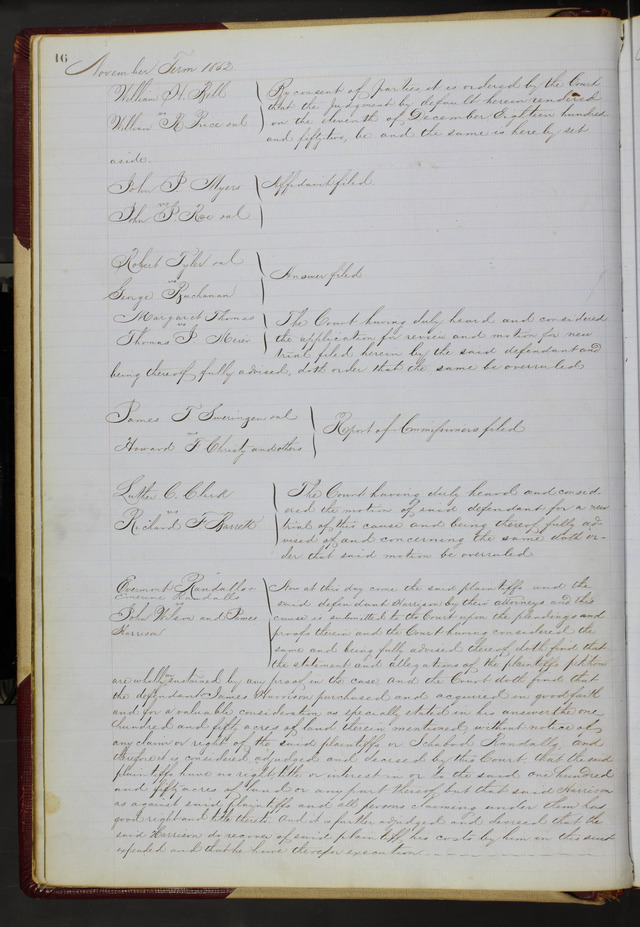 16
November Term 1852
William H. Bell
vs
William R Price et al
By consent of parties it is ordered by the Court
that the judgment by default herein rendered
on the eleventh of December Eighteen hundred
and fifty two, be and the same is hereby set
aside.
John P Myers
vs
John P Roe et al
Affidavit filed
Robert Tyler et al
vs
George Buchanan
Answer filed
Margaret Thomas
vs
Thomas J. Meier
The Court having duly heard and considered
the application for review and motion for new
trial filed herein by the said defendant and
being thereof fully advised, doth order that the same be overruled
James T Sweringen et al
vs
Howard F Christy and others
Report of Commissioners filed
Luther C. Clark
vs
Richard F Barrett
The Court having duly heard and consid
ered the motion of said defendant for a new
trial of this cause and being thereof fully ad-
vised of and concerning the same doth or-
der that said motion be overruled
Evermont Randall &
Emerine Randalls
vs
John Wilson and James
Harrison
Now at this day come the said plaintiffs and the
said defendant Harrison by their attorneys and this
cause is submitted to the Court upon the pleadings and
proofs therein and the Court having considered the
same and being fully advised thereof doth find that
the statement and allegations of the plaintiffs petition
are wholly unsustained by any proof in the case and the Court doth find that
the defendant James Harrison purchased and acquired in good faith
and for a valuable consideration as specially stated in his answer the one
hundred and fifty acres of land therein mentioned, without notice of
any claim or right of the said plaintiffs or Ichabod Randall, and
therefore it is considered adjudged and decreed by this Court, that the said
plaintiffs have no right title or interest in or to the said one hundred
and fifty acres of land or any part thereof but that said Harrison
as against said plaintiffs and all persons claiming under them has
good right and title thereto And it is further adjudged and decreed that the
said Harrison do recover of said plaintiffs his costs by him in this suit
expended and that he have therefor execution